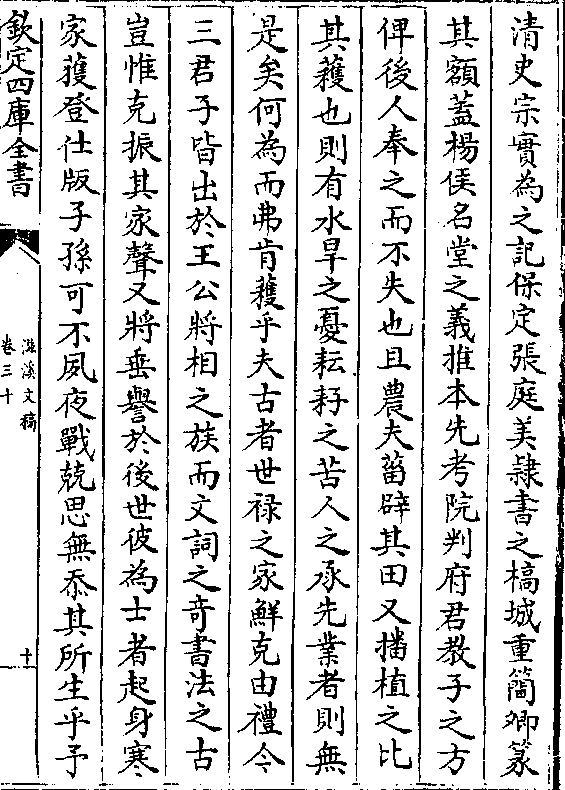 清史宗實為之記保定張庭美隷書之槁城董簡卿篆
其額蓋楊侯名堂之義推本先考院判府君教子之方
俾後人奉之而不失也且農夫菑辟其田又播植之比
其穫也則有水旱之憂耘耔之苦人之承先業者則無
是矣何為而弗肯穫乎夫古者世禄之家鮮克由禮今
三君子皆出於王公將相之族而文詞之竒書法之古
豈惟克振其家聲又將垂譽於後世彼為士者起身寒
家蒦登仕版子孫可不夙夜戰兢思無忝其所生乎予
欽定四庫全書
滋溪文稿
卷三十
十